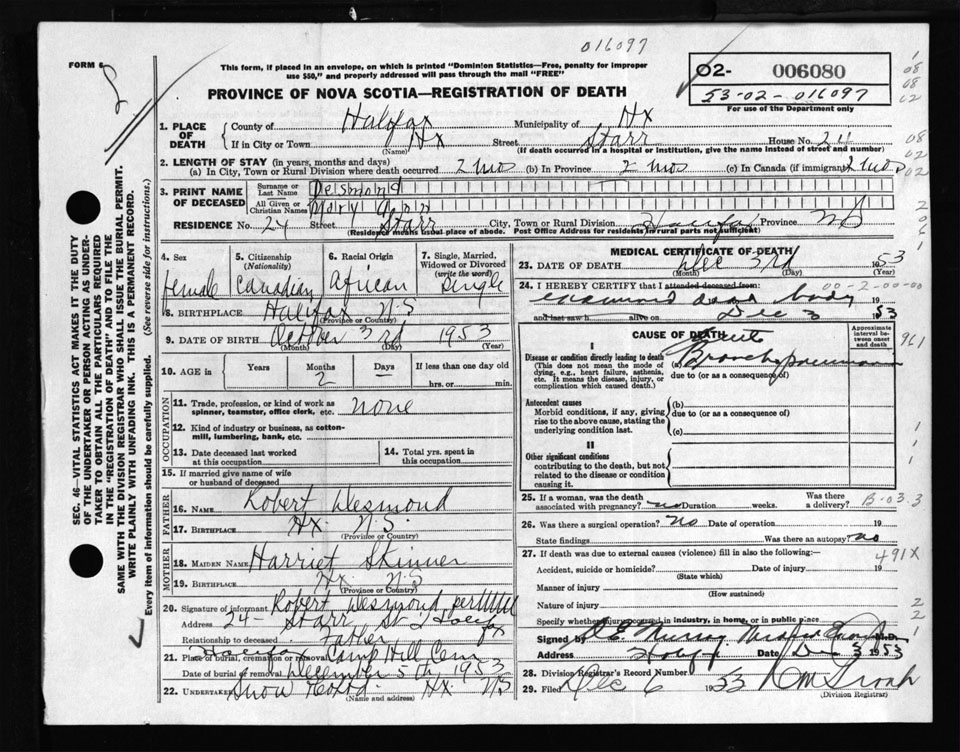 016097
FORM 6
This form, if placed in an envelope, on which is printed "Dominion Statistics—Free, penalty for improper
use $50," and properly addressed will pass through the mail "FREE"
O2- 006080
53-02-016097
For use of the Department only
PROVINCE OF NOVA SCOTIA—REGISTRATION OF DEATH
1. PLACE OF DEATH County of Halifax Municipality of Hx
If in City or Town Hx (Name) Street Starr House No. 24
(If death occurred in a hospital or institution, give the name instead of street and number)
2. LENGTH OF STAY (in years, months and days)
(a) In City, Town or Rural Division where death occurred 2 mos (b) In Province 2 mos (c) In Canada (if immigrant) 2 mos
3. PRINT NAME OF DECEASED
Surname or Last Name Desmond
All Given or Christian Names Mary Ann
RESIDENCE No. 24 Street Starr City, Town or Rural Division Halifax Province NS
(Residence means usual place of abode. Post Office Address for residents in rural parts not sufficient)
4. Sex female
5. Citizenship (Nationality) Canadian
6. Racial Origin African
7. Single, Married, Widowed or Divorced (write the word) Single
8. BIRTHPLACE Halifax N-S
(Province or Country)
9. DATE OF BIRTH October 3rd 1953
(Month) (Day) (Year)
10. AGE in Years Months 2 Days — If less than one day old
hrs. or min.
OCCUPATION
11. Trade, profession, or kind of work as spinner, teamster, office clerk, etc. none
12. Kind of industry or business, as cotton-mill, lumbering, bank, etc.
13. Date deceased last worked at this occupation
14. Total yrs. spent in this occupation
15. If married give name of wife or husband of deceased
FATHER
16. Name Robert Desmond
17. Birthplace Hx N.S.
(Province or Country)
MOTHER
18. MAIDEN NAME Harriet Skinner
19. BIRTHPLACE Hx N.S
(Province or Country)
20. Signature of informant Robert Desmond per
Address 24- Starr St Halifax
Relationship to deceased Father
21. Place of burial, cremation or removal Halifax Camp Hill Cem
Date of burial or removal December 5th 1953
22. Undertaker Snow Hx NS
(Name and address)
MEDICAL CERTIFICATE OF DEATH
23. DATE OF DEATH Dec 3rd 1953
(Month) (Day) (Year)
24. I HEREBY CERTIFY that I attended deceased from: 00-2-00-00
examined dead body 19
and last saw h alive on Dec 3 1953
CAUSE OF DEATH
Approximate interval between onset and death
961
I
Disease or condition directly leading to death
(This does not mean the mode of dying, e.g., heart failure, asthenia, etc. It means the disease, injury, or complication which caused death.)
(a) Acute Bronchopneumonia
due to (or as a consequence of)
Antecedent causes
Morbid conditions, if any, giving rise to the above cause, stating the underlying condition last.
(b)
due to (or as a consequence of)
(c)
II
Other significant conditions
contributing to the death, but not related to the disease or condition causing it.
25. If a woman, was the death associated with pregnancy? no Duration weeks. Was there a delivery? B-03.3
26. Was there surgical operation? no Date of operation 19
State findings Was there an autopsy? no
27. If death was due to external causes (violence) fill in also the following:—
491X
Accident, suicide or homicide? Date of injury 19
(State which)
Manner of injury
(How sustained)
Nature of injury
Specify whether injury occurred in industry, in home, or in public place
Signed by Murray M.D.
Address Halifax Date Dec 3 1953
28. Division Registrar's Record Number
29. Filed Dec 6 1953
(Division Registrar)
SEC. 46—VITAL STATISTICS ACT MAKES IT THE DUTY
OF THE UNDERTAKER OR PERSON ACTING AS UNDER-
TAKER TO OBTAIN ALL THE PARTICULARS REQUIRED
IN THE "REGISTRATION OF DEATH" AND TO FILE THE
SAME WITH THE DIVISION REGISTRAR WHO SHALL ISSUE THE BURIAL PERMIT.
WRITE PLAINLY WITH UNFADING INK. THIS IS A PERMANENT RECORD.
Every item of information should be carefully supplied. (See reverse side for instructions.)